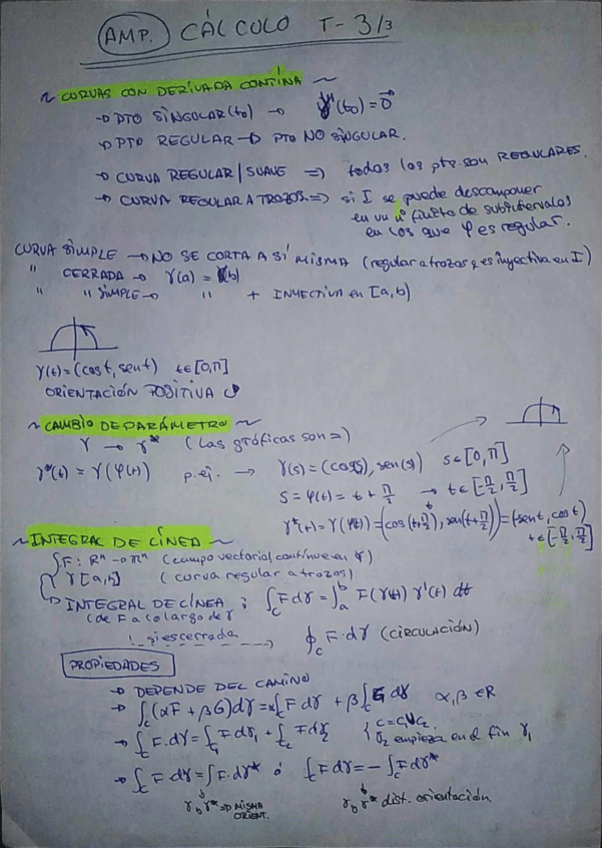 AMP. CÁLCULO T-3/3
~ CURVAS CON DERIVADA CONTÍNA ~
→ PTO SINGULAR (t₀) → γ'(t₀) = 0⃗
→ PTO REGULAR → PTO NO SINGULAR.
→ CURVA REGULAR/SUAVE ⇒ todos los pts son REGULARES.
→ CURVA REGULAR A TROZOS ⇒ si I se puede descomponer
en un nº finito de subintervalos
en los que φ es regular.
CURVA SIMPLE → NO SE CORTA A SÍ MISMA (regular a trozos y es inyectiva en I)
" CERRADA → γ(a) = γ(b)
" " SIMPLE → " + INYECTIVA en [a,b)
γ(t) = (cost, sent) t∈[0,π]
ORIENTACIÓN POSITIVA ↺
~ CAMBIO DE PARÁMETRO ~
γ → γ* (Las gráficas son =)
γ*(t) = γ(φ(t)) p.ej. → γ(s) = (cos(s), sen(s)) s∈[0,π]
s = φ(t) = t + π/2 → t∈[-π/2, π/2]
γ*(t) = γ(φ(t)) = (cos(t+π/2), sen(t+π/2)) = (-sent, cost)
t∈[-π/2, π/2]
~ INTEGRAL DE LÍNEA ~
F: Rⁿ → Rⁿ (campo vectorial continuo en φ)
γ [a,b] (curva regular a trozos)
→ INTEGRAL DE LÍNEA : ∫_C F dγ = ∫_a^b F(γ(t)) γ'(t) dt
(de F a lo largo de γ
si es cerrada → ∮_C F·dγ (CIRCULACIÓN)
PROPIEDADES
→ DEPENDE DEL CAMINO
→ ∫_C (αF + βG)dγ = α∫_C F dγ + β∫_C G dγ α,β ∈ R
→ ∫_C F·dγ = ∫_C₁ F dγ₁ + ∫_C₂ F dγ₂ { C = C₁∪C₂
γ₂ empieza en el fin γ₁
→ ∫_C F dγ = ∫ F·dγ* ó ∫_C F dγ = - ∫_C F dγ*
γ y γ* ⇒ MISMA
ORIENT.
γ y γ* dist. orientación.